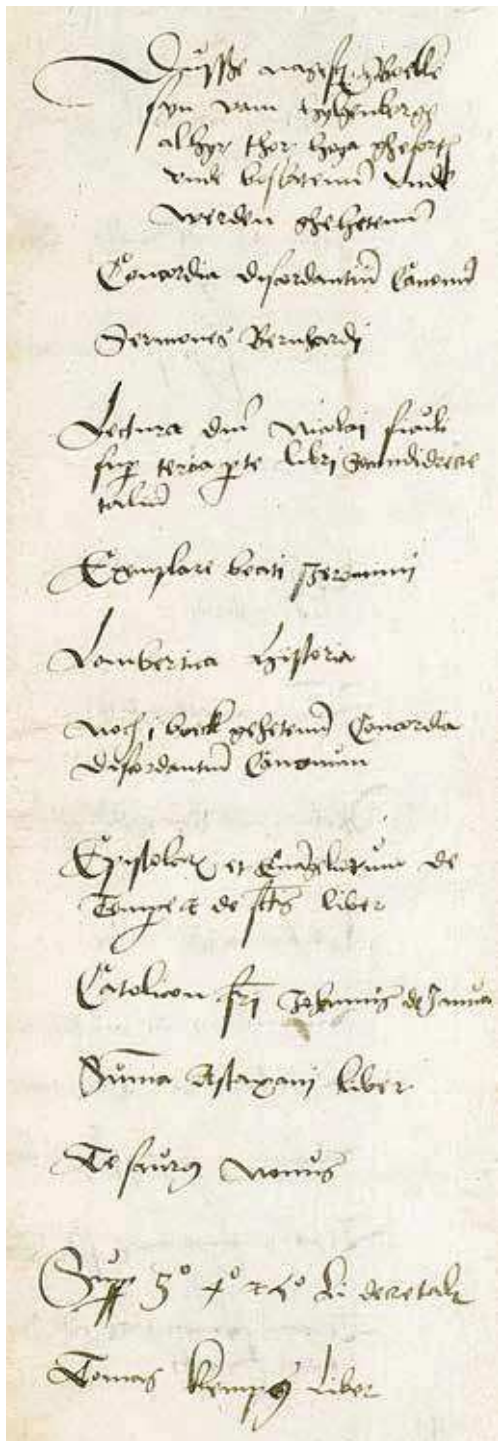 Dusse nagescr. boeke
syn vam Hylgenberge
alhyr thor Hoya ghefort
unde
werden ghehetenn
Concordia discordantiu Canonu
Sermones Bernhardi
Lectura dni Nicolai siculi
sup tercia pte libri secundi decre
taliu
Exemplare beati Jeronimi
Lambertica historia
Noch i boek gehetenn Concordia
discordantiu Canonum
Epistolar et Euangeliorum de
Tempe et de sctis liber
Catolicon fris Johannis de Janua
Suma Astaxani liber
Tesaurus nouus
Supp 3º 4º et 5º li decretaliu
Tomas Kempis liber